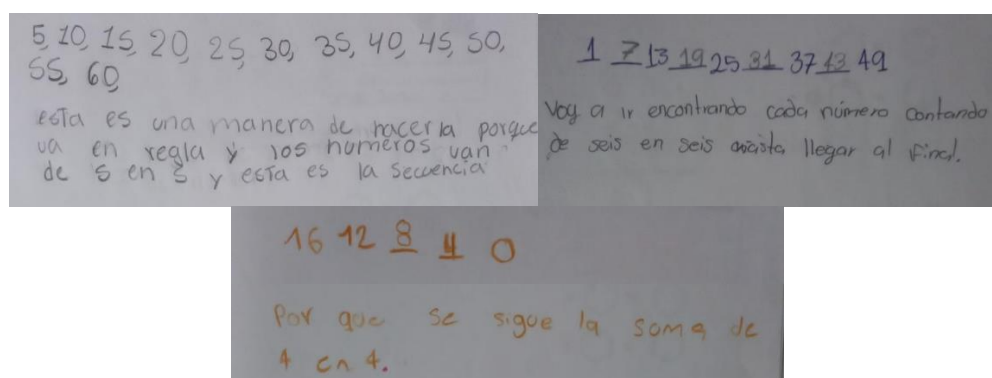 5, 10, 15, 20, 25, 30, 35, 40, 45, 50,
55, 60,
esta es una manera de hacerla porque
va en regla y los numeros van
de 5 en 5 y esta es la secuencia
1 7 13 19 25 31 37 43 49
Voy a ir encontrando cada número contando
de seis en seis hasta llegar al final.
16 12 8 4 0
Por que se sigue la soma de
4 en 4.